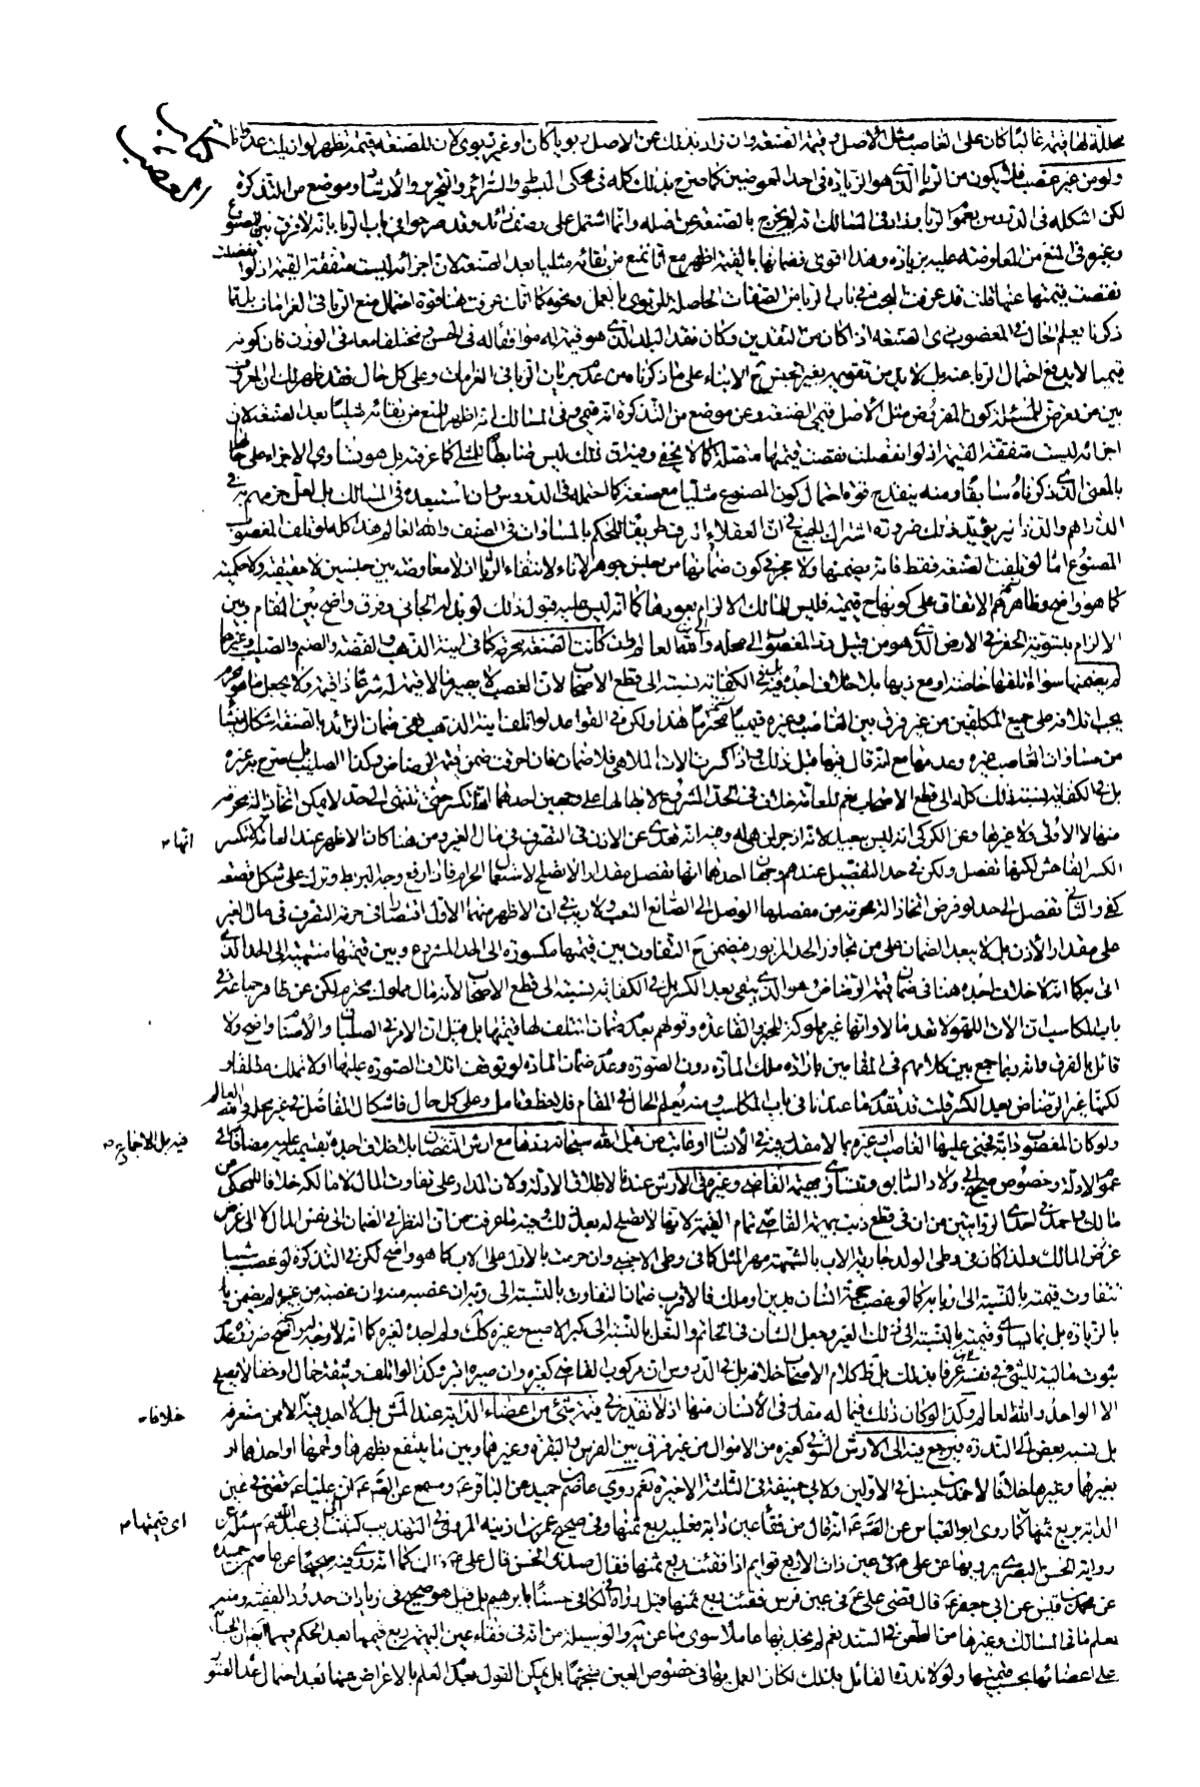 كتاب الغصب
محللة لها قيمة غالبا كان على الغاصب مثل الأصل وقيمة الصنعة وان زاد بذلك عن الاصل ربويا كان او غير ربوي لان للصنعة قيمة تظهر لو ازيلت عدوانا
ولو من غير غصب فلا يكون من الربا الذي هو الزيادة في احد العوضين كما صرح بذلك كله في محكى المبسوط والسرائر والتحرير والارشاد وموضع من التذكرة
لكن اشكله في الدروس بعموم الربا وزاد في المسالك انه لم يخرج بالصنعة عن اصله وانما اشتمل على وصف زائد وقد صرحوا في باب الربا بانه لا فرق بين المصنوع
وغيره في المنع من المعاوضة عليه بزيادة وهذا اقوى فضمانها بالقيمة اظهر مع انا نمنع من بقائه مثليا بعد الصنعة لان اجزائه ليست متفقة القيمة اذ لو انفصلت
نقصت قيمتها عنها قلت قد عرفت البحث في باب الربا من الصفات الحاصلة للربوي بالعمل ونحوه كما انك عرفت هنا قوة احتمال منع الربا في الغرامات بل مما
ذكرنا يعلم الحال في المغصوب ذي الصنعة اذا كان من النقدين وكان نقد البلد الذي هو قيمة له موافقا له في الجنس مختلفا معه في الوزن فان كونه
قيميا لا يدفع احتمال الربا عنه بل لا بد من تقويمه بغير الجنس ح الا بناء على ما ذكرنا من عدم جريان الربا في الغرامات وعلى كل حال فقد ظهر لك ان المعروف
بين من تعرض للمسئلة كون المفروض مثلى الأصل قيمي الصنعة وعن موضع من التذكرة انه قيمي وفي المسالك انه اظهر للمنع من بقائه مثليا بعد الصنعة لان
اجزائه ليست متفقة القيمة اذ لو انفصلت نقصت قيمتها متصلة كما لا يخفى وفيه ان ذلك ليس ضابطا للمثلى كما عرفته بل هو تساوي الاجزاء على حالها
بالمعنى الذي ذكرناه سابقا ومنه ينقدح قوة احتمال كون المصنوع مثليا مع صنعته كما احتمله في الدروس وان استبعده في المسالك بل لعل جزمهم به في
الدراهم والدنانير يؤيد ذلك ضرورة اشتراك الجميع في ان العقلاء اذ رف طريقا للحكم بالمساوات في الصنف والله العالم هذا كله لو تلف المغصوب
المصنوع اما لو تلفت الصنعة فقط فانه يضمنها ولا عجز في كون ضمانها من جنس جوهر الاناء لانتفاء الربا اذ لا معاوضة بين جنسين لا حقيقة ولا حكمية
كما هو واضح وظاهرهم الاتفاق على كونها ح قيمية فليس للمالك الالزام بعودها كما انه ليس عليه قبول ذلك لو بذله الجاني وفرق واضح بين المقام وبين
الالزام بتسوية الحفر في الارض الذي هو من قبيل رد المغصوب الى محله والله العالم وان كانت الصنعة محرمة كما في آنية الذهب والفضة والصنم والصليب وغيرها
لم يضمنها سواء اتلفها خاصة او مع ذيها بلا خلاف اجده فيه بل في الكفاية نسبته الى قطع الاصحاب لان الغصب لا يصير ما لا قيمة له شرعا ذا قيمة ولا يجعل ما هو محرم
يجب اتلافه على جميع المكلفين من غير فرق بين الغاصب وغيره قيميا محترما هذا ولكن في القواعد لو اتلف آنية الذهب ففي ضمان الزائد بالصنعة اشكال ينشأ
من مساواة الغاصب غيره وعدمها مع انه قال فيها قبل ذلك واذا كسرت آلات الملاهي فلا ضمان فان احرقت ضمن قيمة الرضاض وكذا الصليب بل صرح به غيره
بل في الكفاية نسبة ذلك كله الى قطع الاصحاب نعم للعامة خلاف في الحد المشروع لابطالها على وجهين احدهما انها تكسر حتى تنتهى الى حد لا يمكن اتخاذ آلة محرمة
منها لا الأولى ولا غيرها وعن الكركي انه ليس ببعيد لانه ازجر لمن هي له وفيه انه تعدى عن الاذن في التصرف في مال الغير ومن هنا كان الاظهر عند العامة لا تكسر
انها
الكسر الفاحش لكنها تفصل ولكن في حد التفصيل عندهم وجهان احدهما انها تفصل بمقدار الا تصلح لاستعمال الحرام فاذا رفع وجه البربط وترك على شكل قصعة
كفى والثاني تفصل الى حد لو فرض اتخاذ الة محرمة من مفصلها الوصل الى الصانع التعب ولا ريب في ان الاظهر منهما الاول اقتصارا في حرمة التصرف في مال الغير
على مقدار الأذن بل لا يبعد الضمان على من تجاوز الحد المزبور فيضمن ح التفاوت بين قيمتها مكسورة الى الحد المشروع وبين قيمتها منتهية الى الحد الذي
اتى به كما انه لا خلاف اجده هنا في ضمان قيمة الرضاض وهو الذي يبقى بعد الكسر بل في الكفاية نسبته الى قطع الاصحاب لانه مال مملوك محترم لكن عن ظاهر جماعة في
باب المكاسب ان آلات اللهو لا تعد مالا وانها غير مملوكة للخبر والقاعدة وقولهم بعدم ضمان المتلف لها قيمتها بل قيل ان الامر في الصلبان والأصنام واضح ولا
قائل بالفرق فانه ربما جمع بين كلامهم في المقامين بارادة ملك المادة دون الصورة وعدم ضمان المادة لو توقف اتلاف الصورة عليها او لا تملك مطلقا و
لكنها غير الرضاض بعد الكسر قلت قد تقدم ما عندنا في باب المكاسب ومنه يعلم الحال في المقام فلاحظ وتامل وعلى كل حال فاشكال الفاضل في غير محله والله العالم
ولو كان المغصوب دابة فجنى عليها الغاصب او غيره بما لا مقدر فيه في الأنسان او عابت من قبل الله سبحانه ردها مع ارش النقصان بلا خلاف اجده بقسميه عليه مضافا الى
فيه بل الاجماع
عموم الادلة وخصوص صحيح ابي ولاد السابق وتتساوى بهيمة القاضي وغيره في الارش عندنا لاطلاق الادلة ولان المدار على تفاوت المال لا مالكه خلافا للمحكى عن
مالك واحمد في احدى الروايتين من ان في قطع ذنب بهيمة القاضي تمام القيمة لانها لا تصلح له بعد ذلك وفيه ما عرفت من ان النظر في الضمان الى نفس المال لا الى غرض
غرض المالك ولذا كان في وطى الولد جارية الاب بالشبهة مهر المثل كما في وطى الاجنبي وان حرمت بالاول على الاب كما هو واضح لكن في التذكرة لو غصب شيئا
تتفاوت قيمته بالنسبة الى اربابه كما لو غصب حجة انسان بدين او ملك فالاقرب ضمان التفاوت بالنسبة الى ربه ان غصبه منه وان غصبه من غيره لم يضمن بل
بالزيادة بل بما يساوي قيمته بالنسبة الى ذلك الغير وجعل الشأن في الخاتم والنعل بالنسبة الى كبير الاصبع وغيره كك ولم اجده لغيره كما انه لا وجه له واضح ضرورة عدم
ثبوت مالية للشئ في نفسه عرفا بذلك بل ظ كلام الاصحاب خلافه بل في الدروس ان مركوب القاضي كغيره وان صيره ابتر وكذا لو اتلف وثيقة بمال او خفا لا يصلح
الا لواحد والله العالم وكذا لو كان ذلك فيما له مقدر في الأنسان منها اذ لا تقدير في قيمة شئ من اعضاء الدابة عند المش بل لا اجد فيه الا من متعرفه
خلافا
بل نسبه بعض الى الندرة فيرجع فيه الى الارش السوقي كغيره من الاموال من غير فرق بين الفرس والبقرة وغيرهما وبين ما ينتفع بظهرها ولحمها او احدهما او
بغيرهما وغيرها خلافا لاحمد بن حنبل في الاولين ولابي حنيفة في الثلثة الاخيرة نعم روى عاصم بن حميد عن الباقر ع ومسمع عن الصاد ع ان عليا ع قضى في عين
الدابة بربع ثمنها كما روى ابو العباس عن الصاد ع انه قال من فقأ عين دابة فعليه ربع ثمنها وفي صحيح عمر بن اذينة المروي في التهذيب كتبت الى ابي عبد الله ع اسئله عن
اى قيمتها
رواية الحسن البصري يرويها عن علي ع في عين ذات الاربع قوايم اذا فقئت ربع ثمنها فقال صدق الحسن قال علي ع ذلك كما انه روى فيه صحيحا عن عاصم بن حميد
عن محمد بن قيس عن ابي جعفر ع قال قضى علي ع في عين فرس فقئت ربع ثمنها قبل رواه في الكافي حسنا بابرهيم بل قيل هو صحيح في زيادات حدود الفقيه ومنه
يعلم ما في المسالك وغيرها من الطعن في السند نعم لم نجد بها عاملا سوى ما عن
على اعضائها بحسب قيمتها ولولا ندرة القائل بذلك لكان العمل بها في خصوص العين متجها بل يمكن القول بعدم العلم بالاعراض عنها بعد احتمال